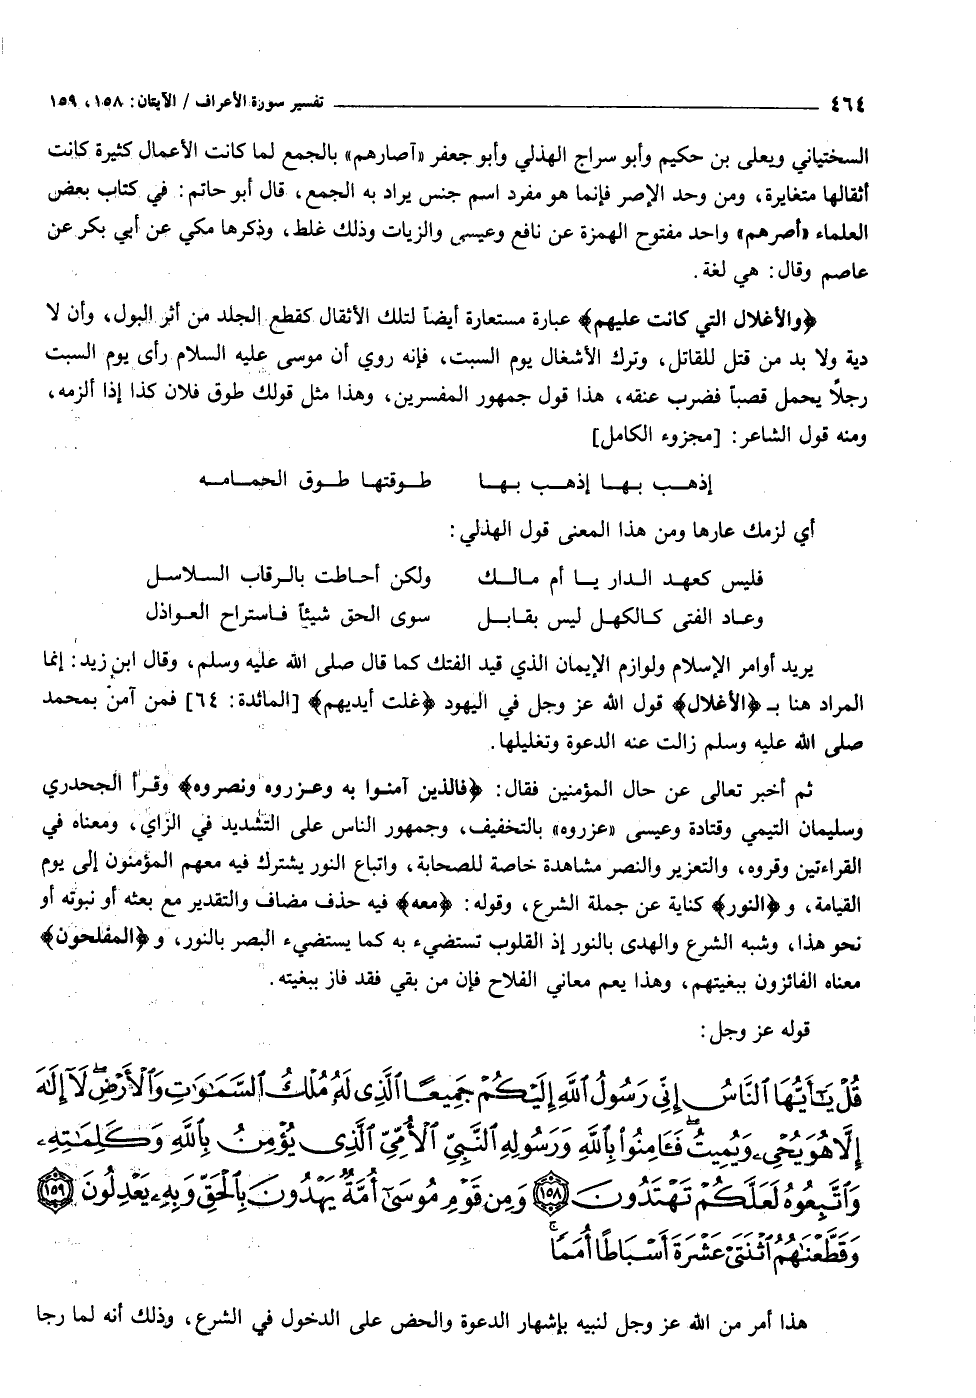 ٤٦٤ ــــــــــــــــــــ تفسير سورة الأعراف / الآيتان: ١٥٨، ١٥٩
السختياني ويعلى بن حكيم وأبو سراج الهذلي وأبو جعفر «آصارهم» بالجمع لما كانت الأعمال كثيرة كانت
أثقالها متغايرة، ومن وحد الإصر فإنما هو مفرد اسم جنس يراد به الجمع، قال أبو حاتم: في كتاب بعض
العلماء «أصرهم» واحد مفتوح الهمزة عن نافع وعيسى والزيات وذلك غلط، وذكرها مكي عن أبي بكر عن
عاصم وقال: هي لغة.
﴿والأغلال التي كانت عليهم﴾ عبارة مستعارة أيضاً لتلك الأثقال كقطع الجلد من أثر البول، وأن لا
دية ولا بد من قتل للقاتل، وترك الأشغال يوم السبت، فإنه روي أن موسى عليه السلام رأى يوم السبت
رجلاً يحمل قصباً فضرب عنقه، هذا قول جمهور المفسرين، وهذا مثل قولك طوق فلان كذا إذا ألزمه،
ومنه قول الشاعر: [مجزوء الكامل]
إذهــب بـهــا إذهــب بـهــا طــوقتهــا طــوق الحمــامــه
أي لزمك عارها ومن هذا المعنى قول الهذلي:
فليس كعهد الدار يـا أم مـالـك ولكن أحـاطت بالـرقاب السـلاسـل
وعـاد الفتى كـالكهـل ليس بقـابـل سوى الحق شيئاً فـاستراح العـواذل
يريد أوامر الإسلام ولوازم الإيمان الذي قيد الفتك كما قال صلى الله عليه وسلم، وقال ابن زيد: إنما
المراد هنا بـ﴿الأغلال﴾ قول الله عز وجل في اليهود ﴿غلت أيديهم﴾ [المائدة: ٦٤] فمن آمن بمحمد
صلى الله عليه وسلم زالت عنه الدعوة وتغليلها.
ثم أخبر تعالى عن حال المؤمنين فقال: ﴿فالذين آمنوا به وعزروه ونصروه﴾ وقرأ الجحدري
وسليمان التيمي وقتادة وعيسى «عزروه» بالتخفيف، وجمهور الناس على التشديد في الزاي، ومعناه في
القراءتين وقروه، والتعزير والنصر مشاهدة خاصة للصحابة، واتباع النور يشترك فيه معهم المؤمنون إلى يوم
القيامة، و﴿النور﴾ كناية عن جملة الشرع، وقوله: ﴿معه﴾ فيه حذف مضاف والتقدير مع بعثه أو نبوته أو
نحو هذا، وشبه الشرع والهدى بالنور إذ القلوب تستضيء به كما يستضيء البصر بالنور، و﴿المفلحون﴾
معناه الفائزون ببغيتهم، وهذا يعم معاني الفلاح فإن من بقي فقد فاز ببغيته.
قوله عز وجل:
قُلْ يَـٰٓأَيُّهَا ٱلنَّاسُ إِنِّى رَسُولُ ٱللَّهِ إِلَيْكُمْ جَمِيعًا ٱلَّذِى لَهُۥ مُلْكُ ٱلسَّمَـٰوَٰتِ وَٱلْأَرْضِ ۖ لَآ إِلَـٰهَ
إِلَّا هُوَ يُحْىِۦ وَيُمِيتُ ۖ فَـَٔامِنُوا۟ بِٱللَّهِ وَرَسُولِهِ ٱلنَّبِىِّ ٱلْأُمِّىِّ ٱلَّذِى يُؤْمِنُ بِٱللَّهِ وَكَلِمَـٰتِهِۦ
وَٱتَّبِعُوهُ لَعَلَّكُمْ تَهْتَدُونَ ﴿١٥٨﴾ وَمِن قَوْمِ مُوسَىٰٓ أُمَّةٌ يَهْدُونَ بِٱلْحَقِّ وَبِهِۦ يَعْدِلُونَ ﴿١٥٩﴾
وَقَطَّعْنَـٰهُمُ ٱثْنَتَىْ عَشْرَةَ أَسْبَاطًا أُمَمًا ۚ
هذا أمر من الله عز وجل لنبيه بإشهار الدعوة والحض على الدخول في الشرع، وذلك أنه لما رجا